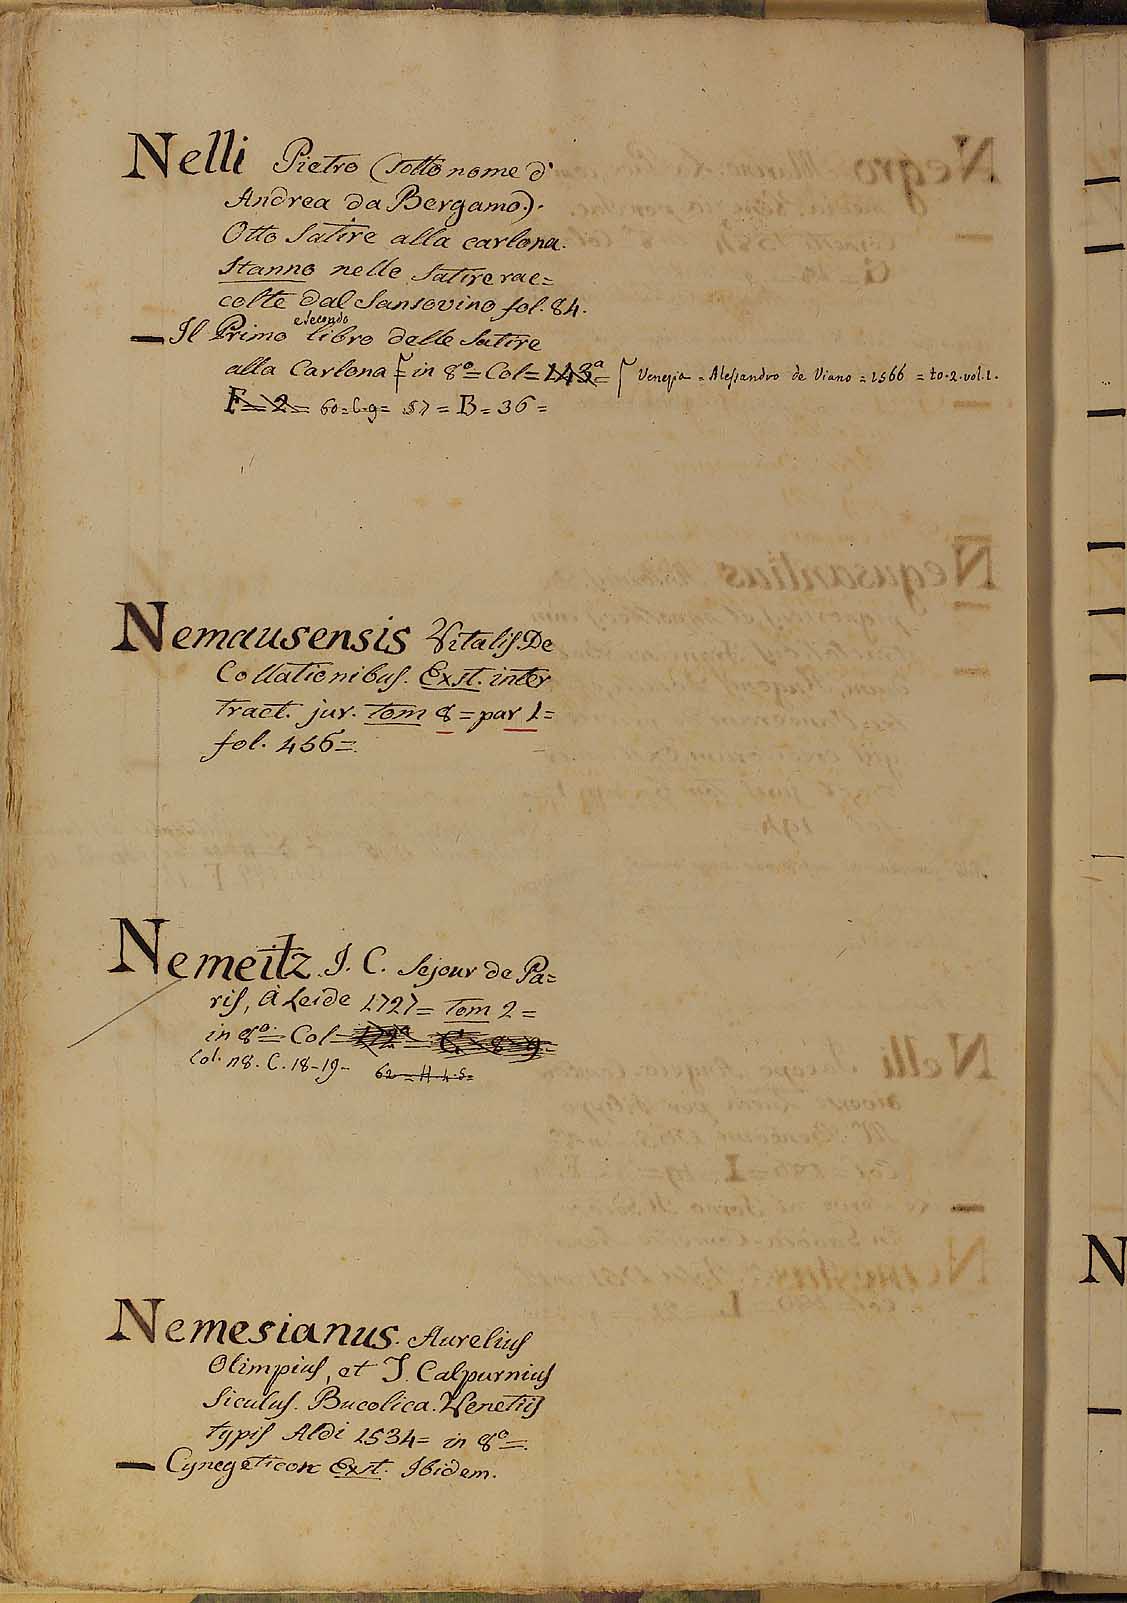 Nelli Pietro (sotto nome d'
Andrea da Bergamo).
Otto Satire alla carlona.
Stanno nelle Satire rac=
colte dal Sansovino fol. 84.
e secondo
Il Primo libro delle Satire
alla Carlona in 8º = Col = 143ª = Venezia = Alessandro de Viano = 1566 = to. 2. vol. 1.
F = 2 = 60 = 6.9 = 57 = B = 36 =
Nemausensis Vitalis. De
Collationibus. Exst. inter
Tract. jur. tom 8 = par 1 =
fol. 456 =
Nemeitz J. C. Sejour de Pa=
ris, à Leide 1727 = Tom 2 =
in 8º = Col =
Col. 118. C. 18-19- 62 = H. 4. 5 =
Nemesianus. Aurelius
Olimpius, et J. Calpurnius
Siculus. Bucolica. Venetiis
typis Aldi 1534 = in 8º =
Cynegeticon Exst. Ibidem.
N